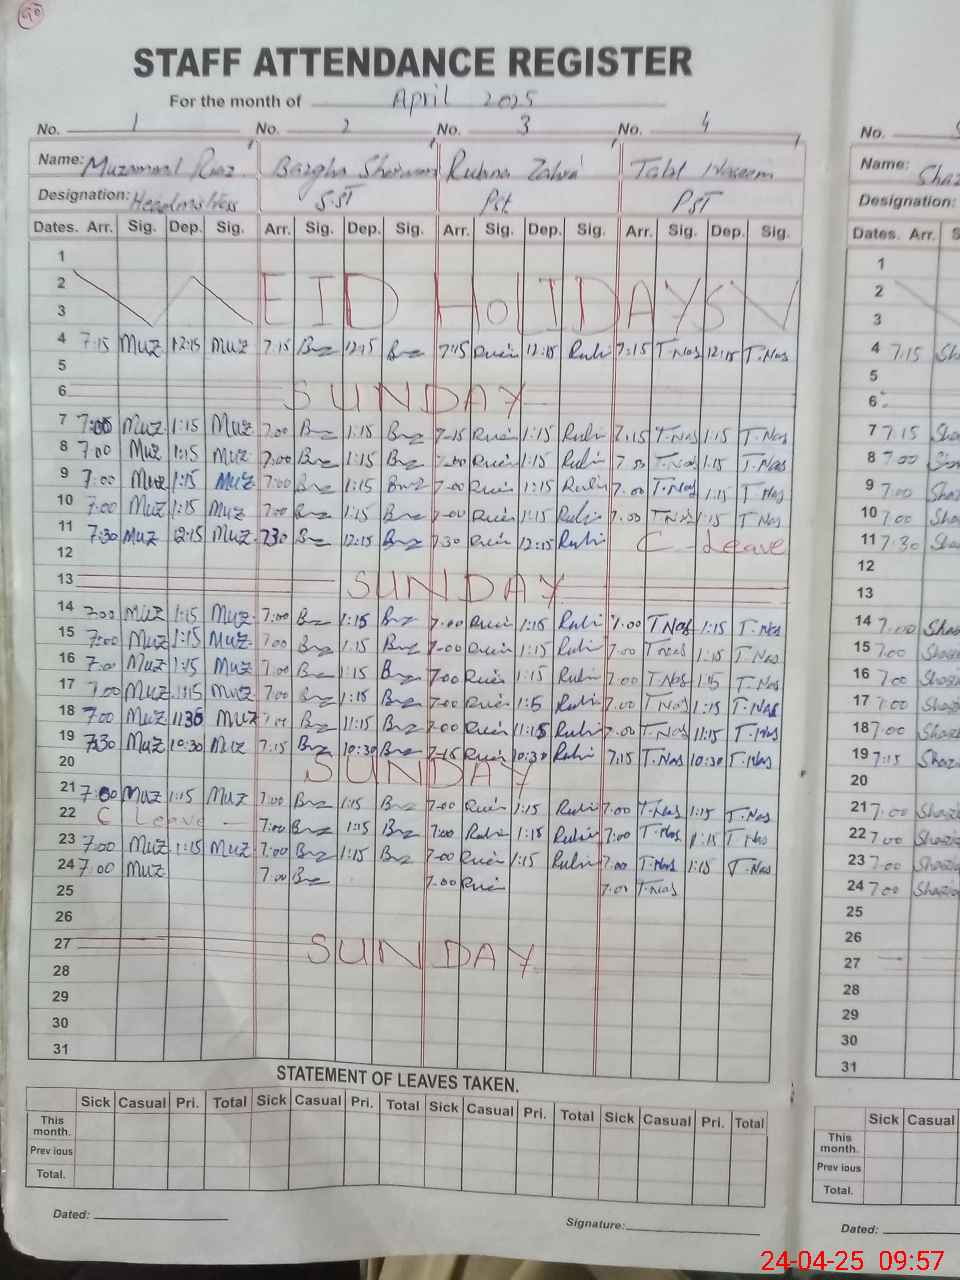 STAFF ATTENDANCE REGISTER
For the month of April 2025
No. 1 No. 2 No. 3 No. 4 No.
Name: Name:
Designation: Headmistress SST Pst PST Designation:
Dates. Arr. Sig. Dep. Sig. Arr. Sig. Dep. Sig. Arr. Sig. Dep. Sig. Arr. Sig. Dep. Sig. Dates. Arr.
1 1
2 EID HOLIDAYS 2
3 3
4 7:15 Muz 12:15 Muz 7:15 Brz 12:15 Brz 7:15 12:15 Rubi 7:15 T.Nas 12:15 T.Nas 4 7:15
5 5
6 SUNDAY 6
7 7:00 Muz 1:15 Muz 7:00 Brz 1:15 Brz 7:15 1:15 Rubi 7:15 T.Nas 1:15 T.Nas 7 7:15
8 7:00 Muz 1:15 Muz 7:00 Brz 1:15 Brz 7:00 1:15 Rubi 7:00 T.Nas 1:15 T.Nas 8 7:00
9 7:00 Muz 1:15 Muz 7:00 Brz 1:15 Brz 7:00 1:15 Rubi 7:00 T.Nas 1:15 T.Nas 9 7:00
10 7:00 Muz 1:15 Muz 7:00 Brz 1:15 Brz 7:00 1:15 Rubi 7:00 T.Nas 1:15 T.Nas 10 7:00
11 7:30 Muz 12:15 Muz 7:30 Brz 12:15 Brz 7:30 12:15 Rubi C-Leave 11 7:30
12 12
13 SUNDAY 13
14 7:00 Muz 1:15 Muz 7:00 Brz 1:15 Brz 7:00 1:15 Rubi 7:00 T.Nas 1:15 T.Nas 14 7:00
15 7:00 Muz 1:15 Muz 7:00 Brz 1:15 Brz 7:00 1:15 Rubi 7:00 T.Nas 1:15 T.Nas 15 7:00
16 7:00 Muz 1:15 Muz 7:00 Brz 1:15 Brz 7:00 1:15 Rubi 7:00 T.Nas 1:15 T.Nas 16 7:00
17 7:00 Muz 1:15 Muz 7:00 Brz 1:15 Brz 7:00 1:5 Rubi 7:00 T.Nas 1:15 T.Nas 17 7:00
18 7:00 Muz Muz 7:00 Brz 11:15 Brz 7:00 11:15 Rubi 7:00 T.Nas 11:15 T.Nas 18 7:00
19 7:30 Muz 10:30 Muz 7:15 Brz 10:30 Brz 7:15 10:30 Rubi 7:15 T.Nas 10:30 T.Nas 19 7:15
20 SUNDAY 20
21 7:00 Muz 1:15 Muz 7:00 Brz 1:15 Brz 7:00 1:15 Rubi 7:00 T.Nas 1:15 T.Nas 21 7:00
22 C Leave 7:00 Brz 1:15 Brz 7:00 Rubi 1:15 Rubi 7:00 T.Nas 1:15 T.Nas 22 7:00
23 7:00 Muz 1:15 Muz 7:00 Brz 1:15 Brz 7:00 1:15 Rubi 7:00 T.Nas 1:15 T.Nas 23 7:00
24 7:00 Muz 7:00 Brz 7:00 7:00 T.Nas 24 7:00
25 25
26 26
27 SUNDAY 27
28 28
29 29
30 30
31 31
STATEMENT OF LEAVES TAKEN.
Sick Casual Pri. Total Sick Casual Pri. Total Sick Casual Pri. Total Sick Casual Pri. Total Sick Casual
This month. This month.
Prev ious Prev ious
Total. Total.
Dated: Signature: Dated:
24-04-25 09:57